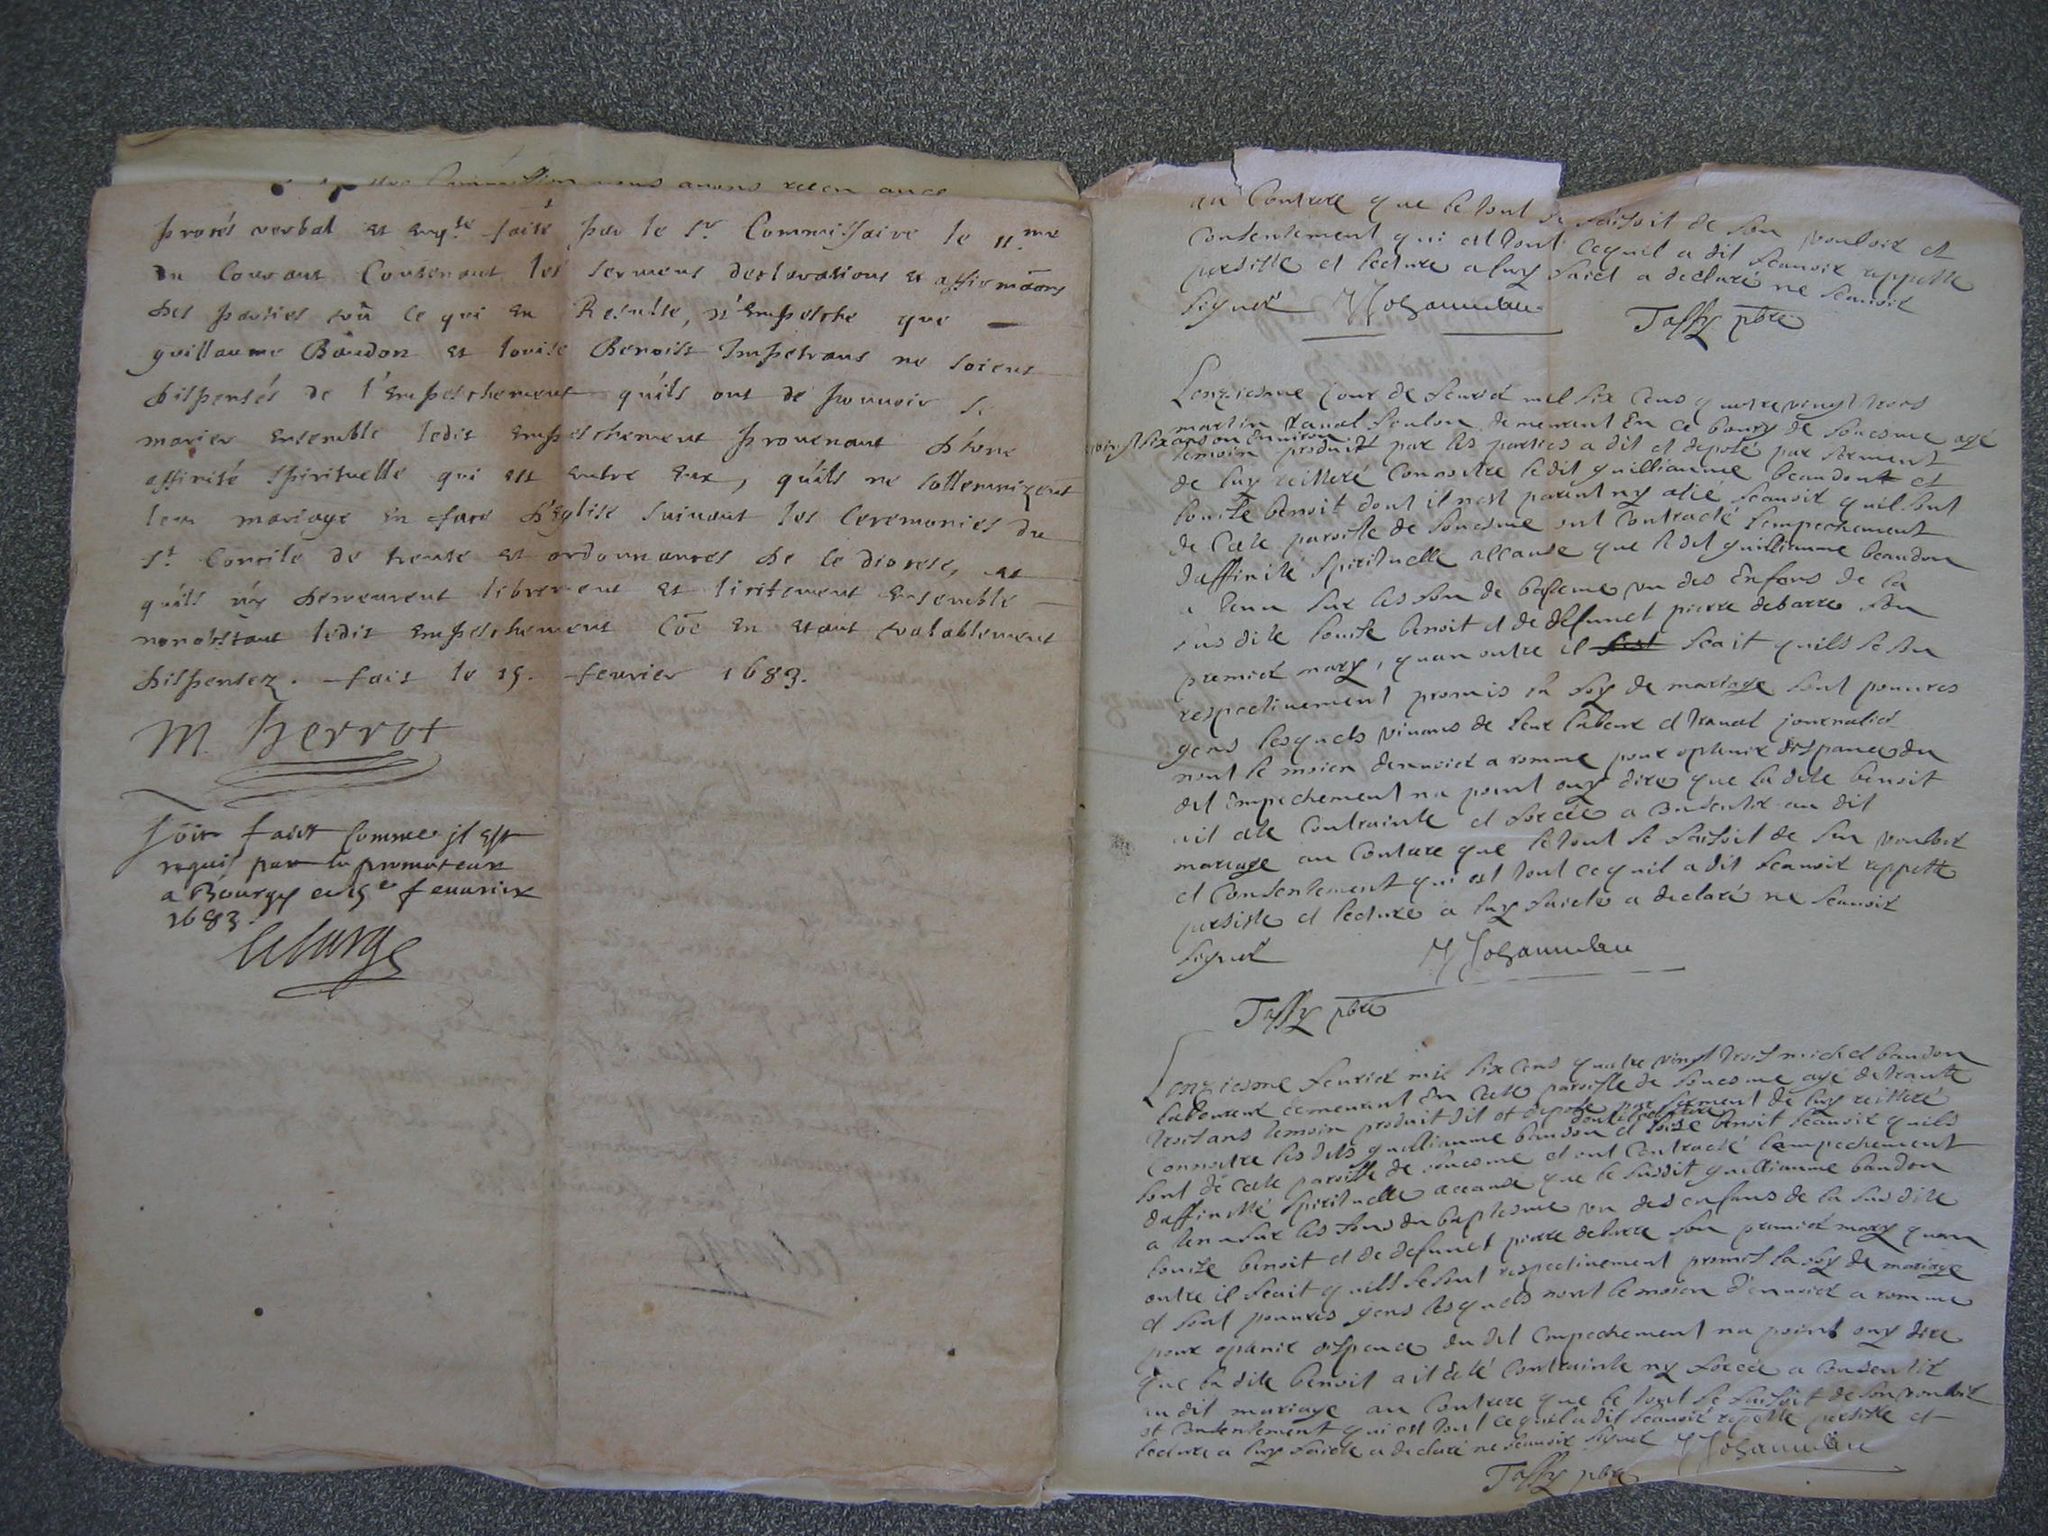 nous avons
procés verbal et enqte faite par le sr Commissaire le 11me
du Courant Contenant les sermens declarations et affirmaons
des parties veu ce qui en Resulte, n'Empesche que
guillaume Baudon et Louise Benoist Impetrans ne soient
dispensés de l'Empeschement qu'ils ont de pouvoir se
marier Ensemble ledit empeschement provenant d'une
affinité spirituelle qui est entre eux, qu'ils ne sollemnizent
leur mariage en face d'Eglise suivant les Ceremonies du
st Concile de trente et ordonnances de ce diocese, et
qu'ils n'y demeurent librement et licitement ensemble
nonobstant ledit empeschement Coe en etant valablement
dispensez. fait le 15. fevrier 1683.
M. Perrot
soit faict comme il est
requis par le promoteur
a Bourges ce 15e feuvrier
1683.
Lelarge
au Contrere que le tout se faisoit de son vouloir et
Consentement qui est tout cequil a dit scauoir reppetté
persiste et lecture a luy faict a declaré ne scauoir
signer
Taffy pbre
Lonziesme jour de feurié mil six cens quatre vingt trois
martin demeurant En ce bourg de souesme agé
vingt six ans ou Environ
temoin produit par les parties a dit et deposé par serment
de luy reitteré Connoitre ledit guilliaume beaudon et
louise benoit dont il nest parent ny alié scauoir quil sont
de Cete paroisse de souesme ont Contracté lempechement
daffinité spirituelle accause que le dit guilliaume beaudon
a tenu sur les fon de bateme un des Enfans de la
sus dite louise benoit et de defunct pierre debarre son
premier mary, quan outre il scait quils se son
respectiuement promis la foy de mariage sont pouures
gens lesquels viuans de leur labeur et trauail journalier
nont le moien denuoier a romme pour optenir dispance du
dit Empechement na point ouy dire que la dite benoit
ait ete Contrainte et forcée a consentir au dit
mariage au Contrere que le tout se faisoit de son vouloir
et Consentement qui est tout ce quil a dit scauoir reppetté
persiste et lecture a luy faicte a declaré ne scauoir
signer
Taffy pbre
Lonziesme feurier mil six cens quatre vingt trois michel baudon
laboureur demeurant En Cete paroisse de souesme agé de trante
trois ans temoin produit dit et depose par serment de luy reitteré
Connoitre les dits guilliaume baudon et louise benoit scauoir quils
sont de Cete paroisse de souesme et ont Contracté lempechement
daffinité spirituelle accause que le susdit guilliaume baudon
a tenu sur les fons du baptesme un des enfans de la sus dite
louise benoit et de defunct pierre debarre son premier mary quan
outre il scait quils se sont respectiuement promis la foy de mariage
et sont pouures gens lesquels nont le moien d'enuoier a romme
pour optenir dispence du dit Empechement na point ouy dire
que la dite benoit ait eté Contrainte ny forcée a consentir
au dit mariage au Contrere que le tout se faisoit de son vouloir
et consentement qui est tout ce quil a dit scauoir repetté persiste et
lecture a luy faicte a declaré ne scauoir signer
Taffy pbre